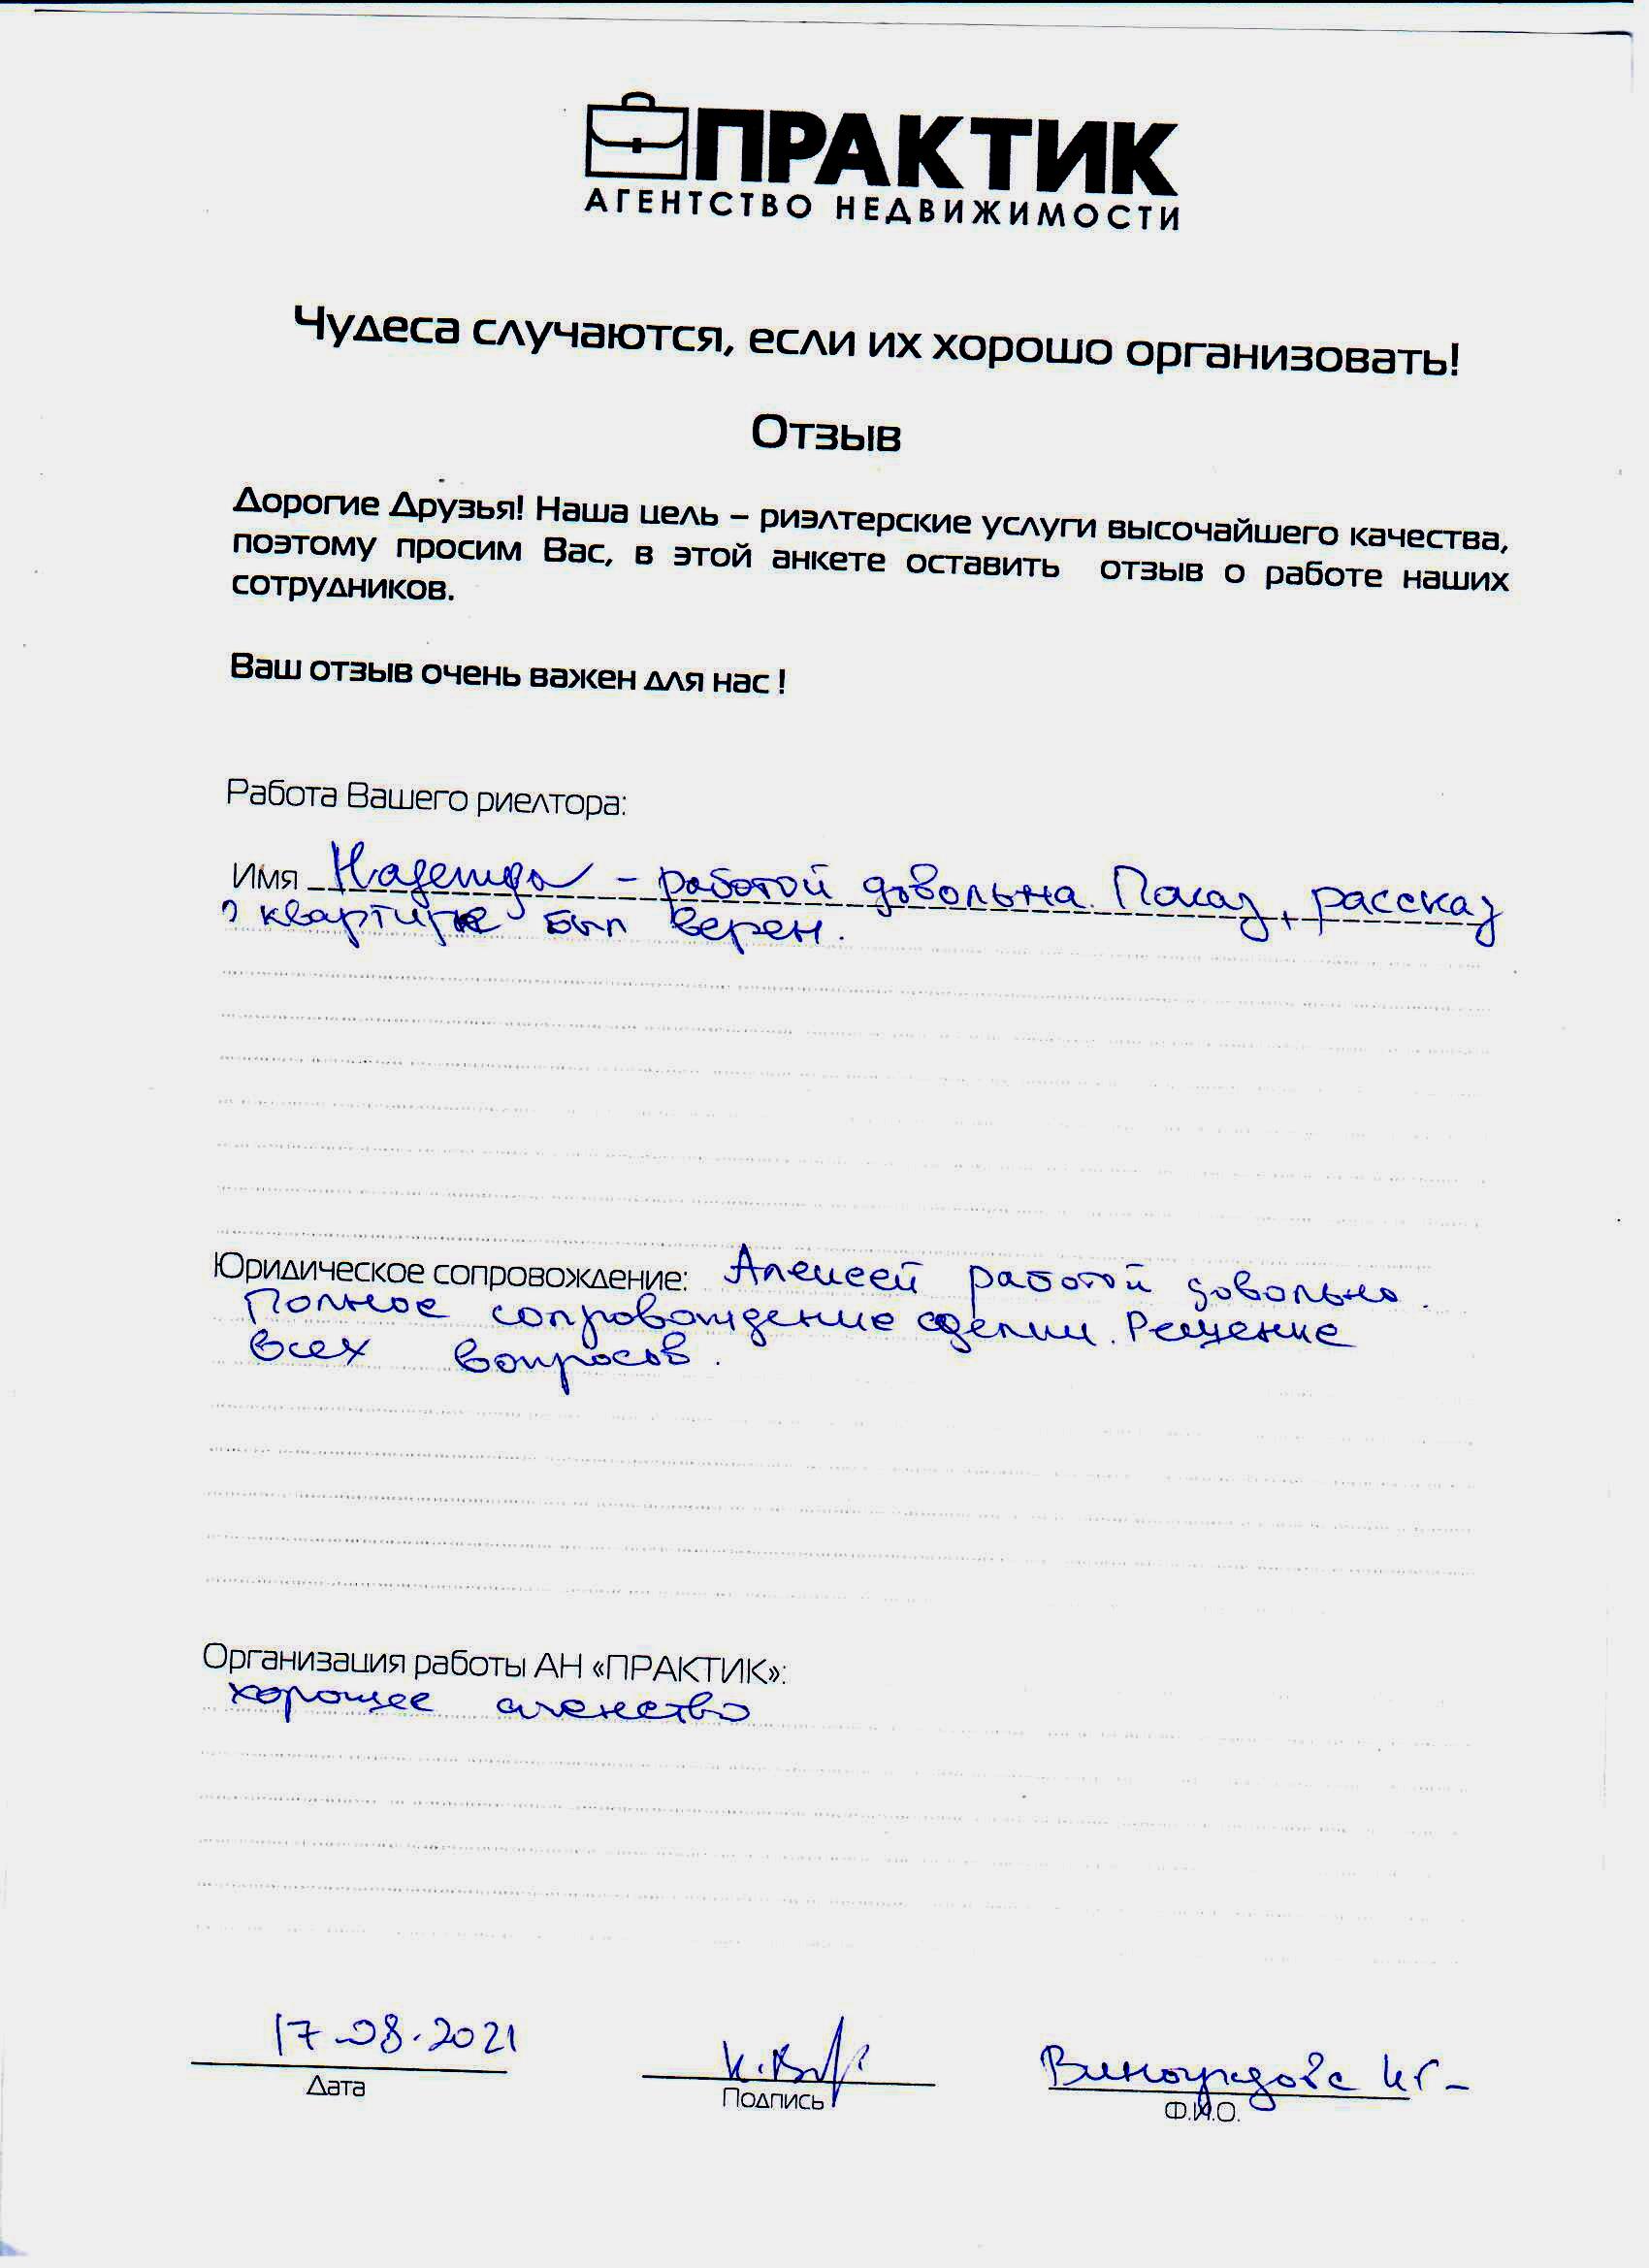 ПРАКТИК
АГЕНТСТВО НЕДВИЖИМОСТИ
Чудеса случаются, если их хорошо организовать!
Отзыв
Дорогие Друзья! Наша цель – риэлтерские услуги высочайшего качества,
поэтому просим Вас, в этой анкете оставить отзыв о работе наших
сотрудников.
Ваш отзыв очень важен для нас !
Работа Вашего риелтора:
Имя Надежда - работой довольна. Показ, рассказ
о квартире был верен.
Юридическое сопровождение: Алексей работой довольна.
Полное сопровождение сделки. Решение
всех вопросов.
Организация работы АН «ПРАКТИК»:
хорошее
17.08.2021
Дата
Подпись
Виноградова
Ф.И.О.